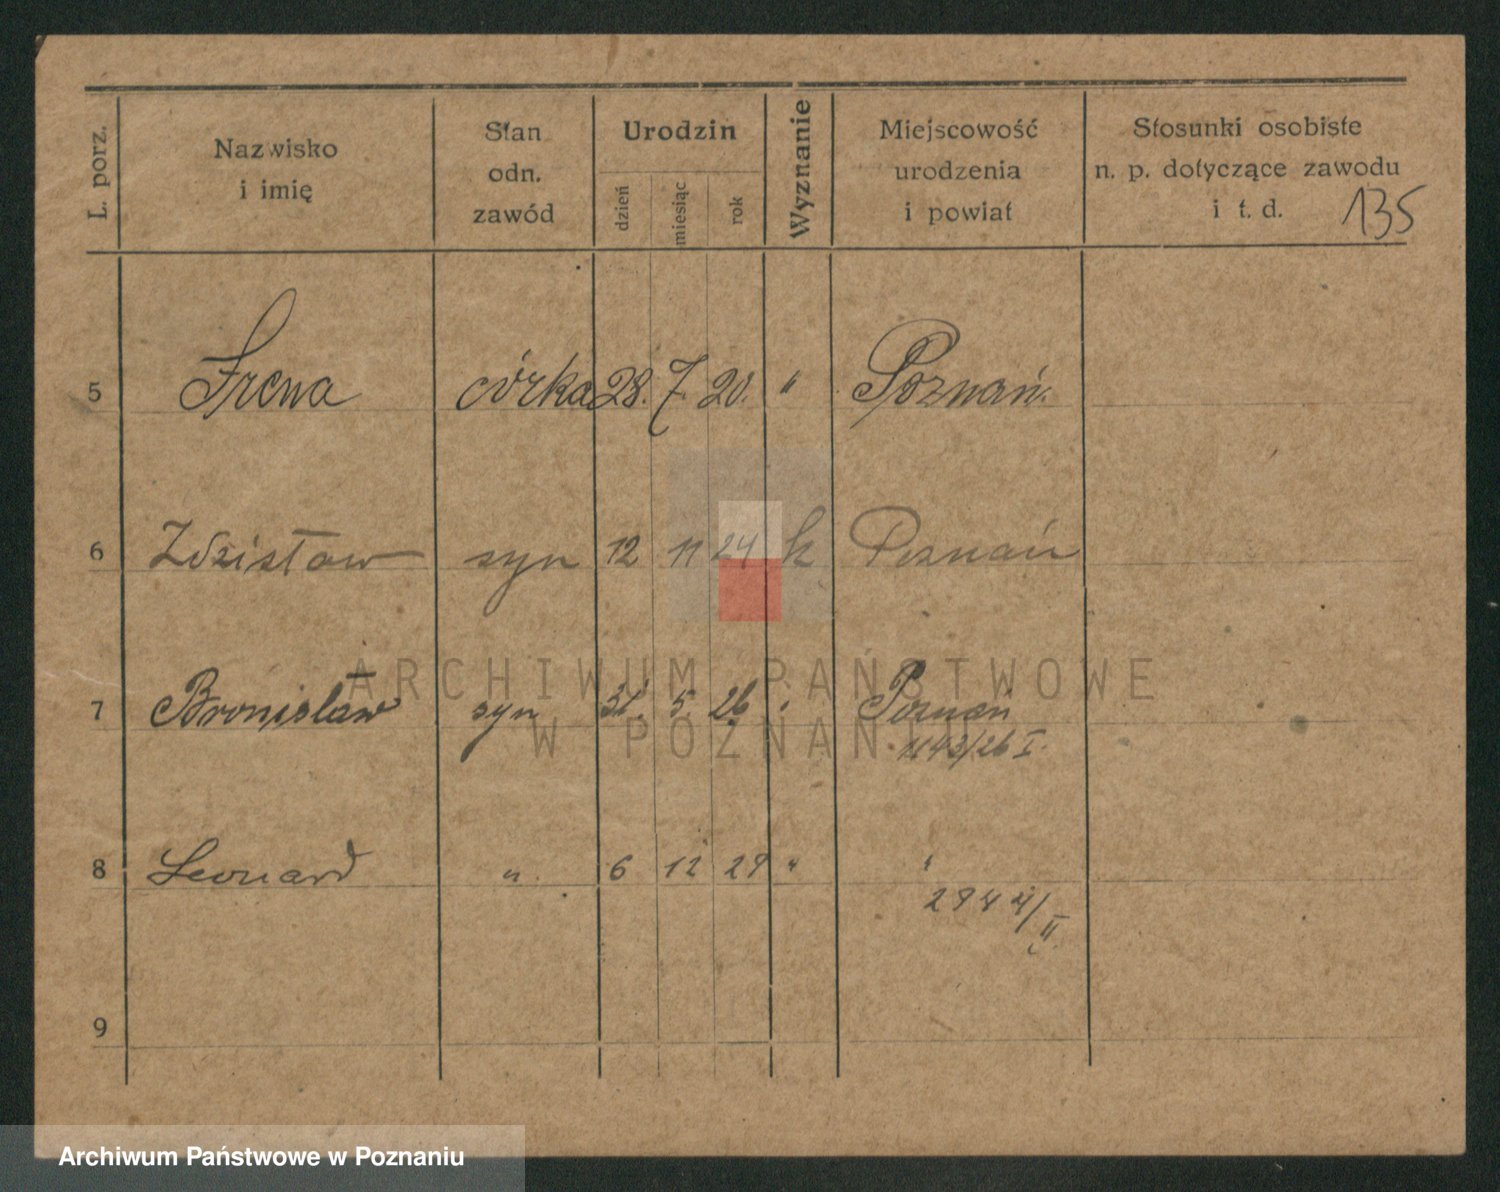 L. porz.
Nazwisko
i imię
Stan
odn.
zawód
Urodzin
dzień
miesiąc
rok
Wyznanie
Miejscowość
urodzenia
i powiat
Stosunki osobiste
n. p. dotyczące zawodu
i t. d.
135
5 Irena córka 28. 7. 20. " Poznań.
6 Zdzisław syn 12 11 24 k Poznań
7 Bronisław syn 31. 5 26 " Poznań
/26 I.
8 Leonard " 6 12 29 " "
2944/II
9
ARCHIWUM PAŃSTWOWE
W POZNANIU
Archiwum Państwowe w Poznaniu